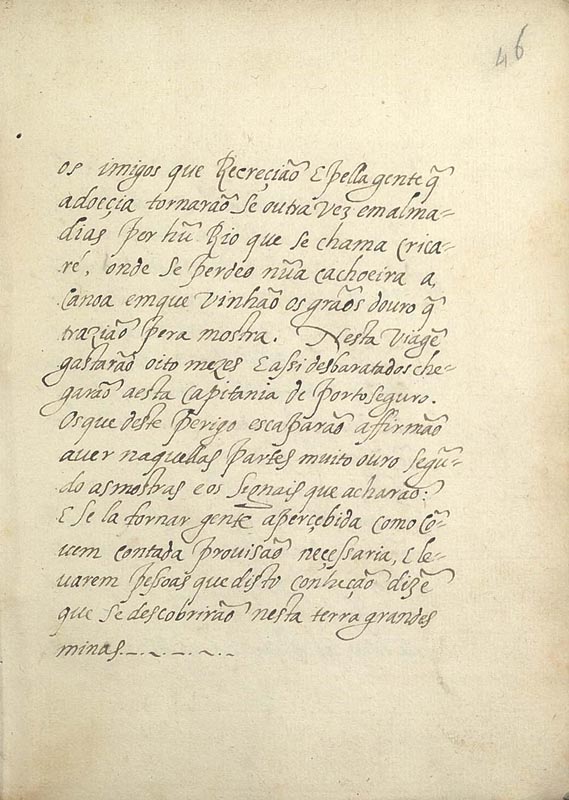 46
os imigos que Recreçião E pella gente q̃
adoeçia tornarão se outra vez em alma-
dias per hũ Rio que se chama crica-
ré, onde se perdeo nũa cachoeira a
canoa em que vinhão os grãos douro q̃
trazião pera mostra. Nesta viagẽ
gastarão oito mezes E assi desbaratados che-
garão a esta capitania de porto seguro.
Os que deste perigo escaparão affirmão
aver naquellas partes muito ouro segũ-
do as mostras e os sognais que acharão:
E se la tornar gente aperçebida como cõ-
vem com toda provisão neçessaria, E le-
varem pesoas que disto conheção dizẽ
que se descobrirão nesta terra grandes
minas.—.—.—.—